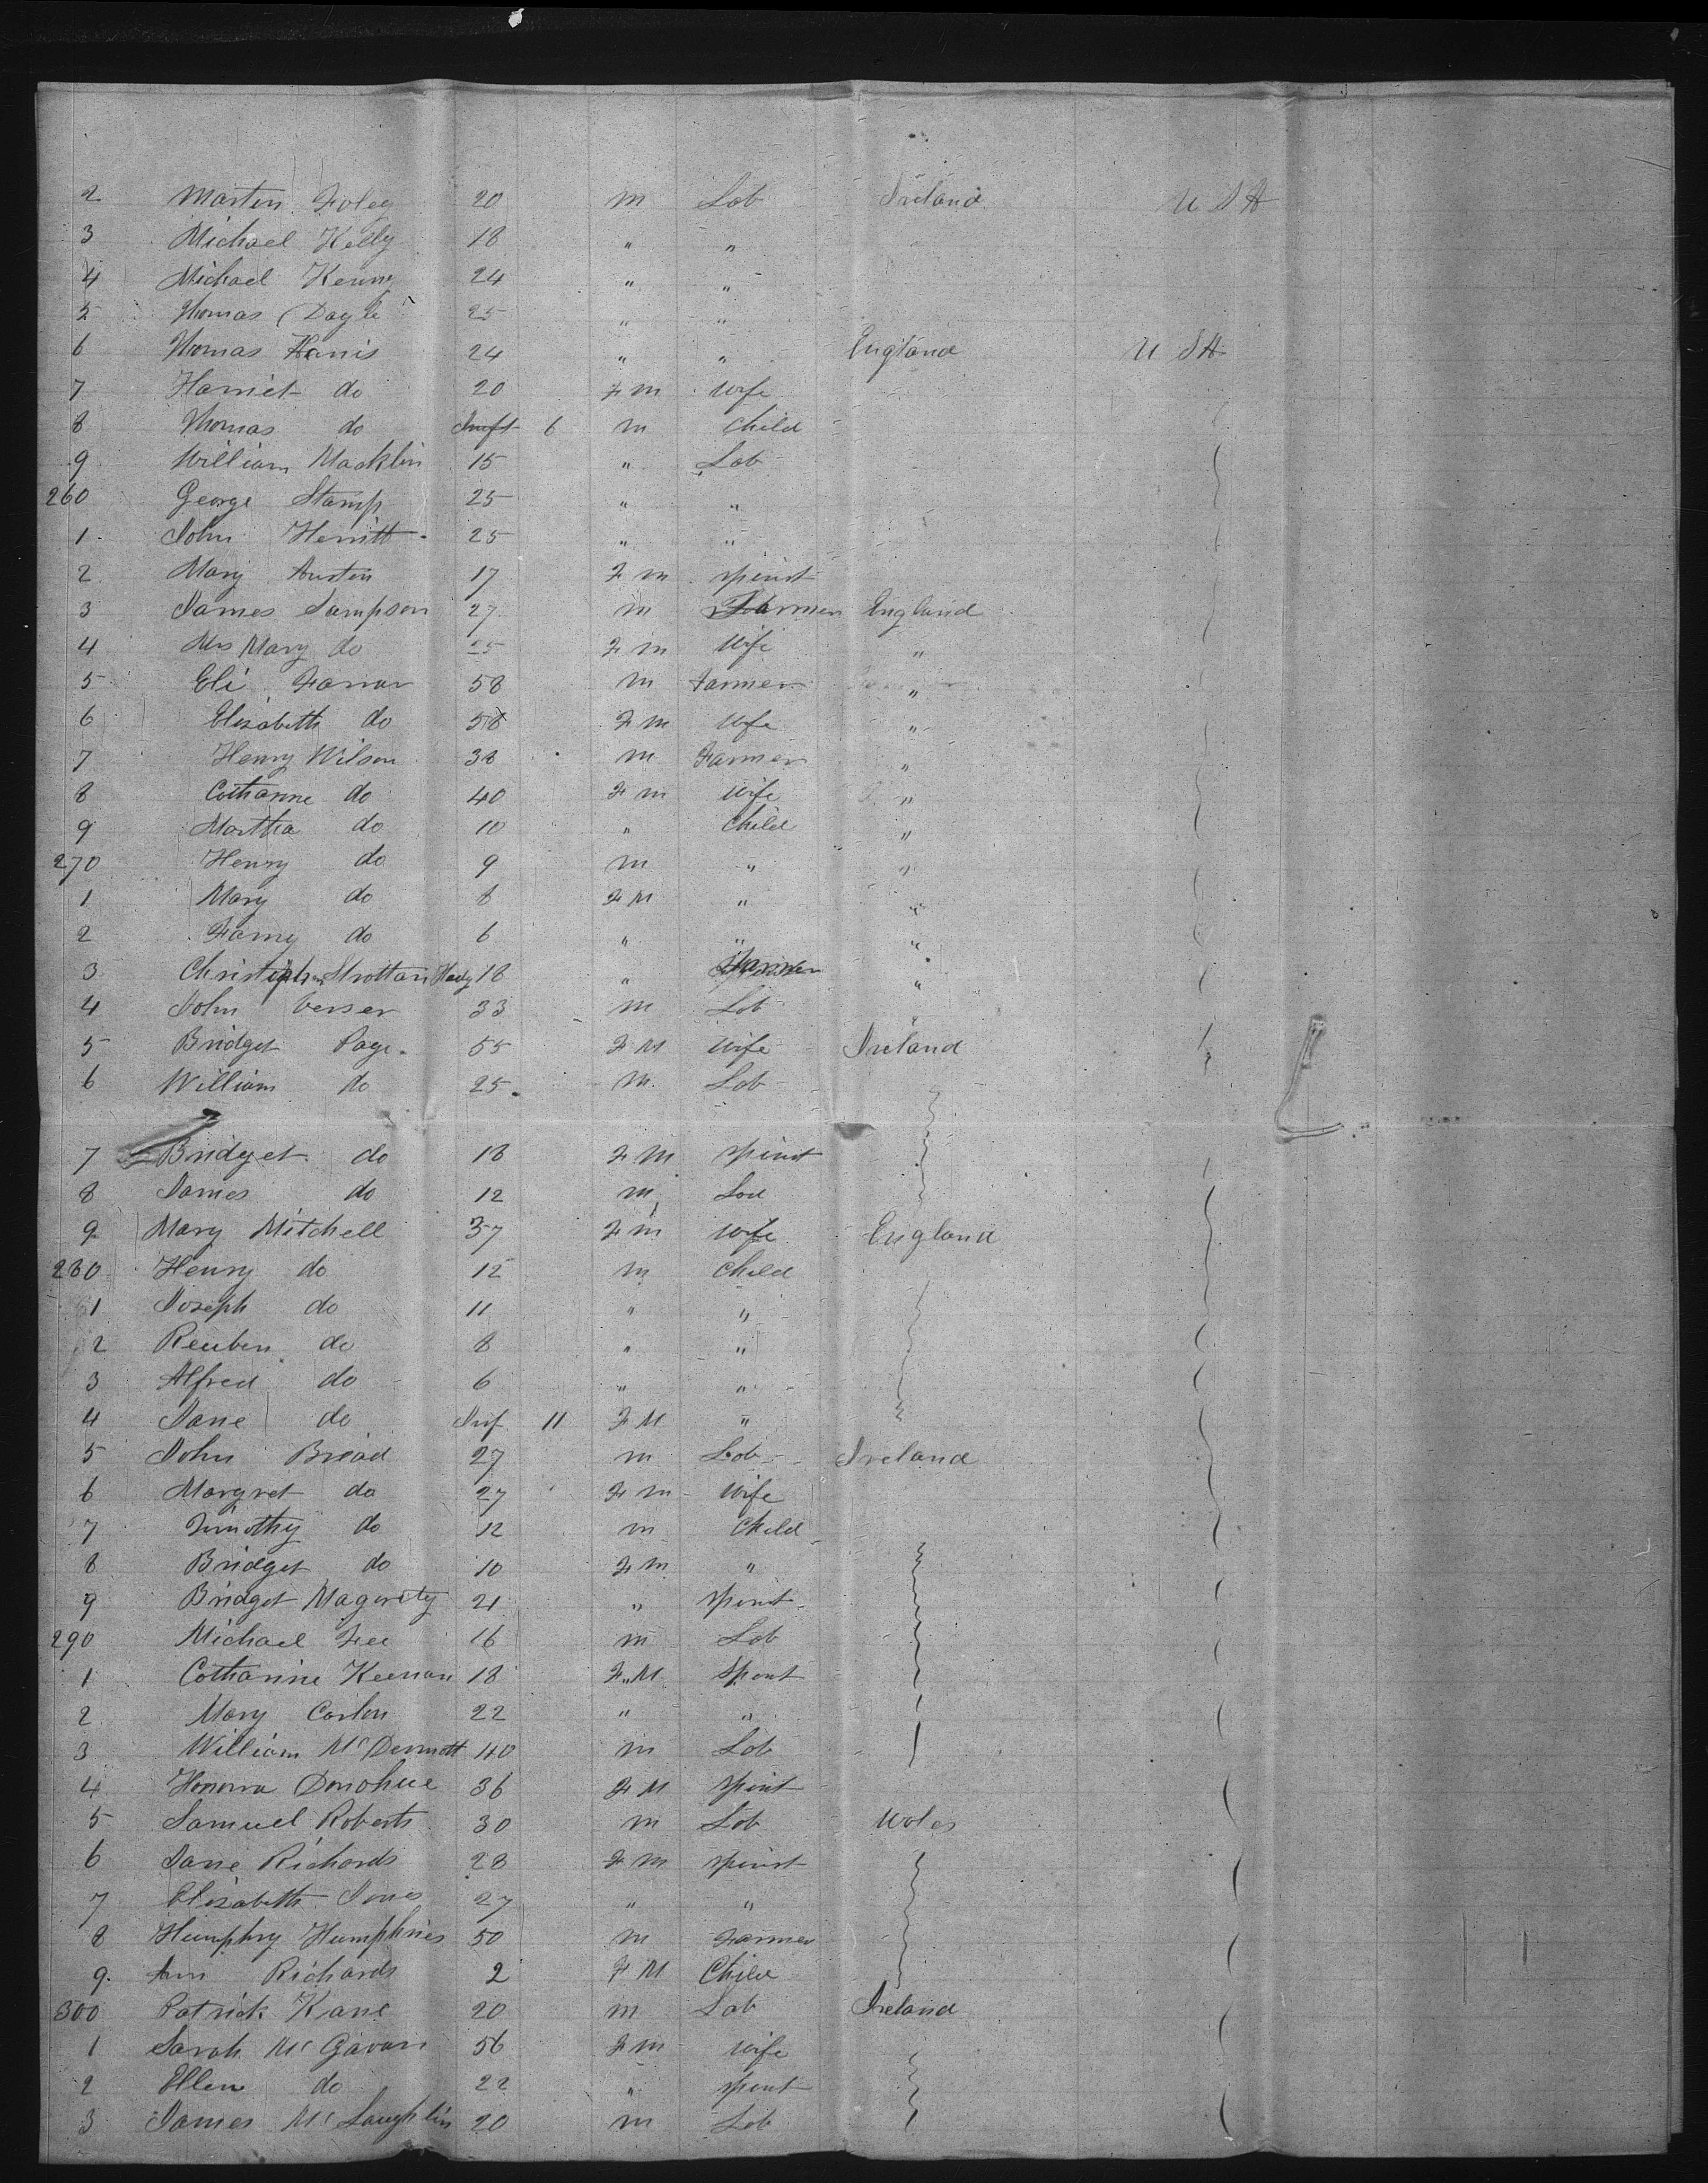 2 Martin Foley 20 m Lab Ireland U S A
3 Michael Kelly 18 " "
4 Michael Kenny 24 " "
5 Thomas Doyle 25 " "
6 Thomas Harris 24 " " England U S A
7 Harriet do 20 F m wife
8 Thomas do Inft 6 m Child
9 William Macklin 15 " Lab
260 George Stamp 25 " "
1 John Herritt 25 " "
2 Mary Austin 17 F m spinst
3 James Sampson 27 m Farmer England
4 Mrs Mary do 25 F m wife "
5 Eli Farrar 58 m Farmer "
6 Elizabeth do 58 F m wife "
7 Henry Wilson 38 m Farmer "
8 Catharine do 40 F m wife "
9 Martha do 10 " Child "
270 Henry do 9 m " "
1 Mary do 8 F M " "
2 Fanny do 6 " " "
3 Christopher 18 " Farmer "
4 John 33 m Lab "
5 Bridget Page 55 F M wife Ireland
6 William do 25 m Lab
7 Bridget do 18 F M spinst
8 James do 12 m Lab
9 Mary Mitchell 37 F m wife England
280 Henry do 12 m Child
1 Joseph do 11 " "
2 Reuben do 8 " "
3 Alfred do 6 " "
4 Jane do Inf 11 F M "
5 John Broad 27 m Lab Ireland
6 Margret do 27 F m wife
7 Timothy do 12 m Child
8 Bridget do 10 F m "
9 Bridget Magerity 21 " spinst
290 Michael Fee 16 m Lab
1 Catharine Keenan 18 F M spinst
2 Mary Carlin 22 " "
3 William McDermott 40 m Lab
4 Honora Donohue 36 F M spinst
5 Samuel Roberts 30 m Lab Wales
6 Jane Richards 28 F m spinst
7 Elizabeth Jones 27 " "
8 Humphry Humphries 50 m Farmer
9 Ann Richards 2 F M Child
300 Patrick Kane 20 m Lab Ireland
1 Sarah McGavan 56 F m wife
2 Ellen do 22 " spinst
3 James McLaughlin 20 m Lab